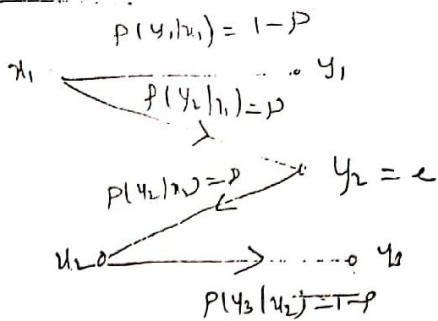 P(y₁|x₁) = 1-P
x₁ y₁
P(y₂|x₁) = p
P(y₂|x₂) = P y₂ = e
x₂ y₃
P(y₃|x₂) = 1-P